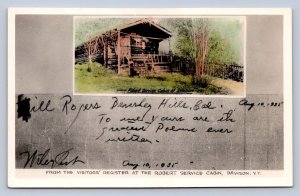 Will Rogers Beverley Hills, Cal. Aug 10, 1935
To me yours are the
greatest Poems ever
written.
Wiley Post Aug 10, 1935
FROM THE VISITORS' REGISTER AT THE ROBERT SERVICE CABIN, DAWSON, Y.T.